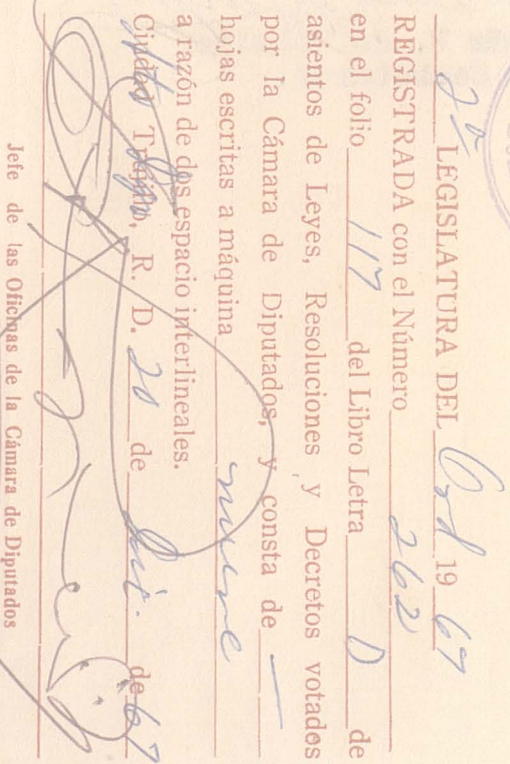 2ª LEGISLATURA DEL Ord 1967
REGISTRADA con el Número 262
en el folio 117 del Libro Letra D de
asientos de Leyes, Resoluciones y Decretos votados
por la Cámara de Diputados, y consta de —
hojas escritas a máquina nueve
a razón de dos espacio interlineales.
Ciudad Trujillo, R. D. 20 de Dic. de 67
Jefe de las Oficinas de la Cámara de Diputados